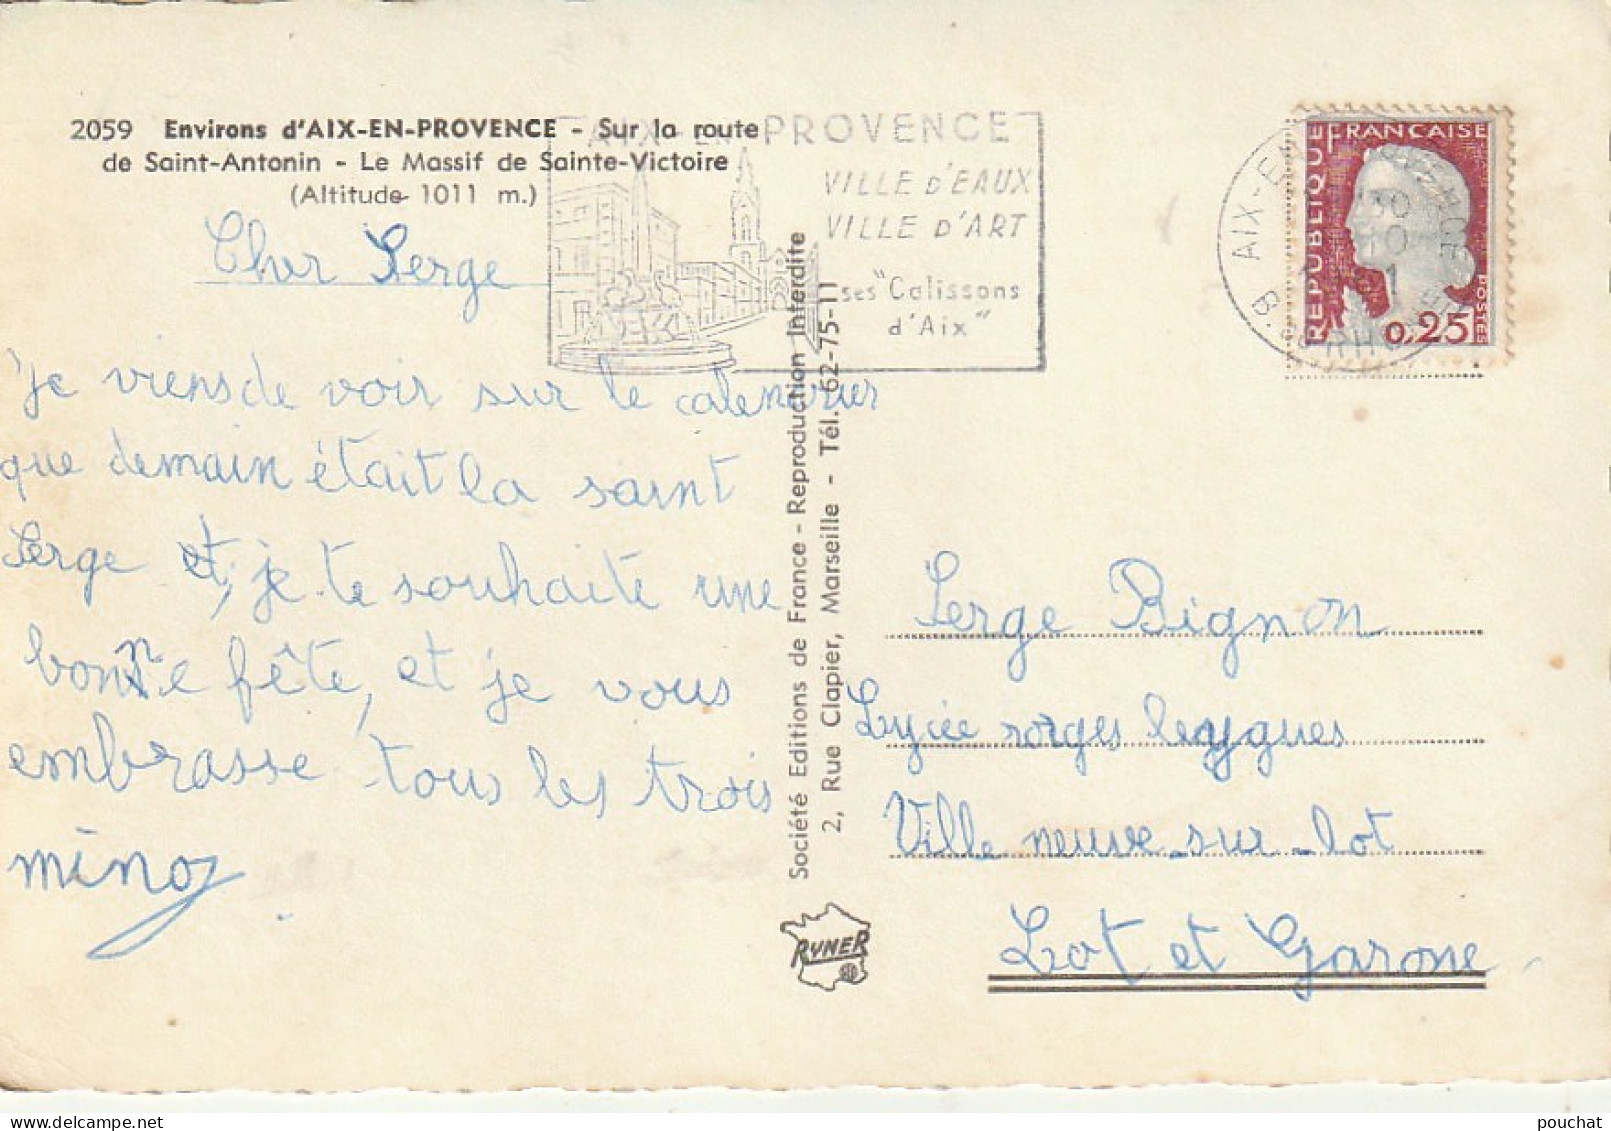 2059 Environs d'AIX-EN-PROVENCE - Sur la route
de Saint-Antonin - Le Massif de Sainte-Victoire
(Altitude 1011 m.)
AIX-EN-PROVENCE
VILLE D'EAUX
VILLE D'ART
ses "Calissons
d'Aix"
AIX-EN
30
10
RHONE
REPUBLIQUE
FRANCAISE
POSTES
0,25
Cher Serge
Je viens de voir sur le calendrier
que demain était la saint
Serge et, je te souhaite une
bonne fête, et je vous
embrasse tous les trois
mino
Société Editions de France - Reproduction Interdite
2, Rue Clapier, Marseille - Tél. 62-75-11
RYNER
Serge Bignon
Lycée rorges leygues
Ville neuve-sur-lot
Lot et Garone
pouchat